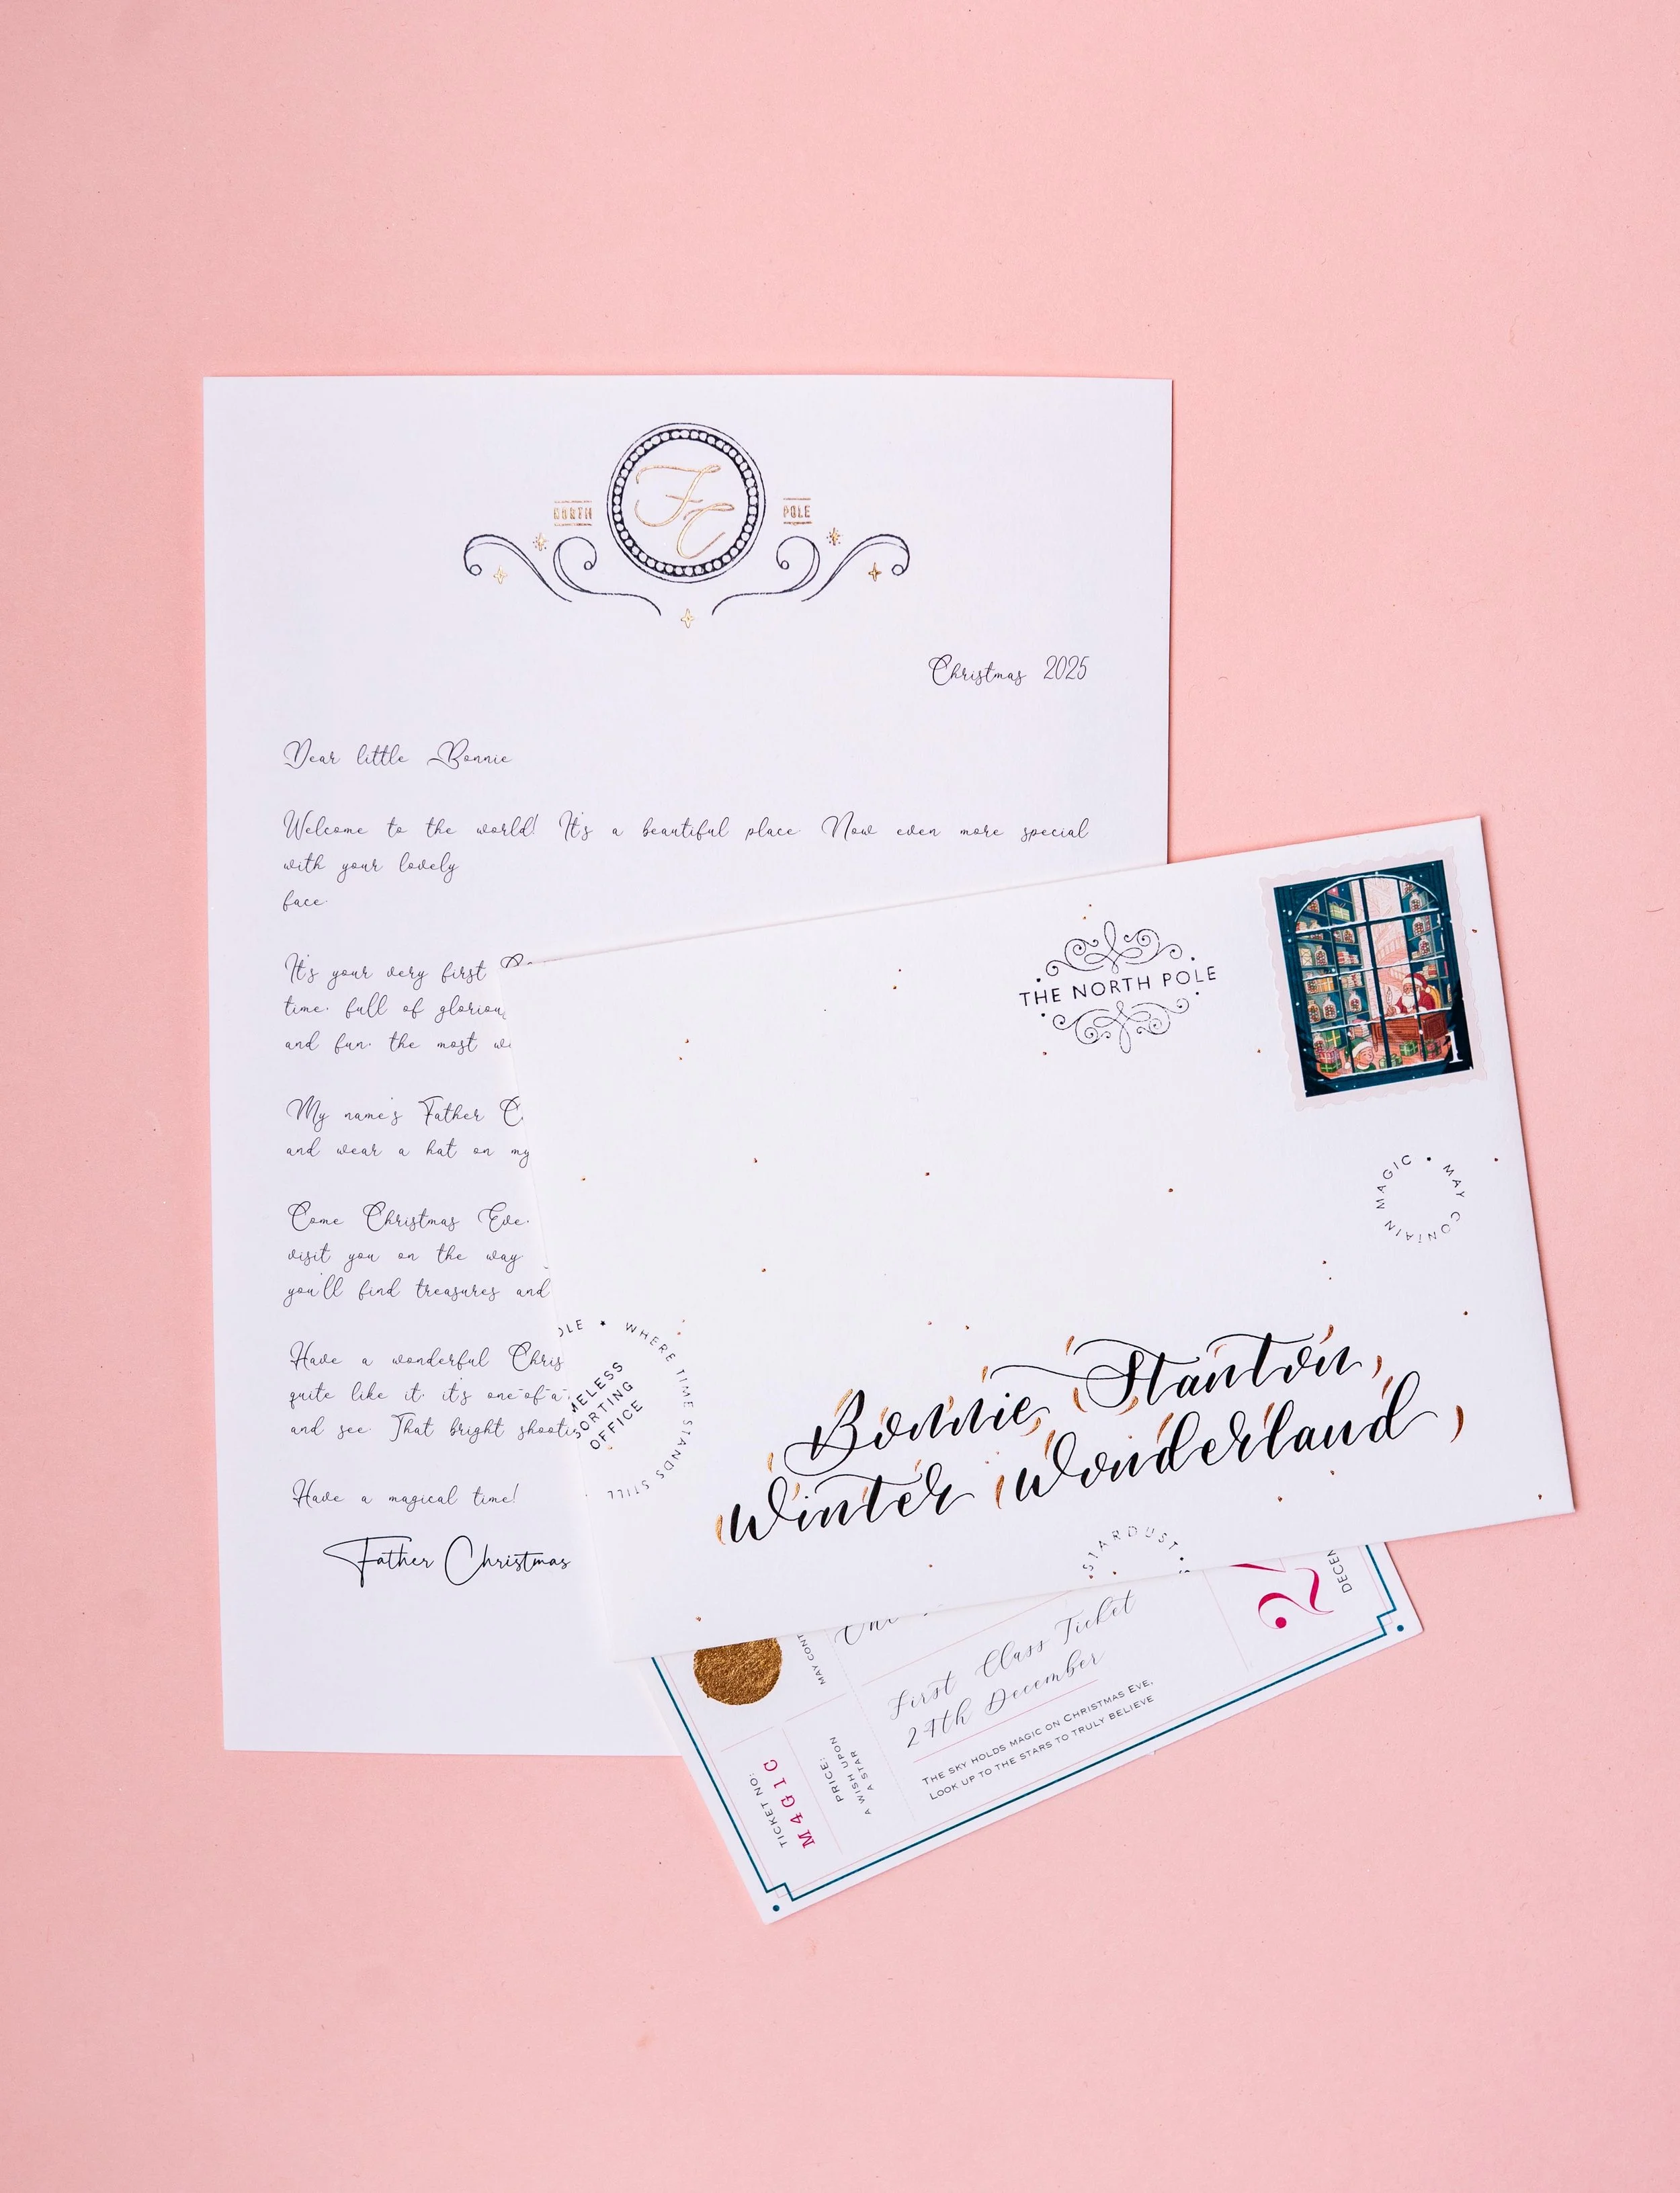 NORTH
FC
POLE
Christmas 2025
Dear little Bonnie
Welcome to the world! It's a beautiful place. Now even more special
with your lovely
face.
It's your very first
time, full of
and fun, the most
My name's Father
and wear a hat on my
Come Christmas Eve,
visit you on the way
you'll find treasures and
Have a wonderful
quite like it, it's one-of-a-
and see. That bright
Have a magical time!
Father Christmas
THE NORTH POLE
1
MAY CONTAIN MAGIC
WHERE TIME STANDS STILL
OFFICE
Bonnie Stanton,
Winter Wonderland,
STARDUST
MAY
First Class Ticket
24th December
THE SKY HOLDS MAGIC ON CHRISTMAS EVE,
LOOK UP TO THE STARS TO TRULY BELIEVE
TICKET NO:
M4G1C
PRICE:
A WISH UPON
A STAR